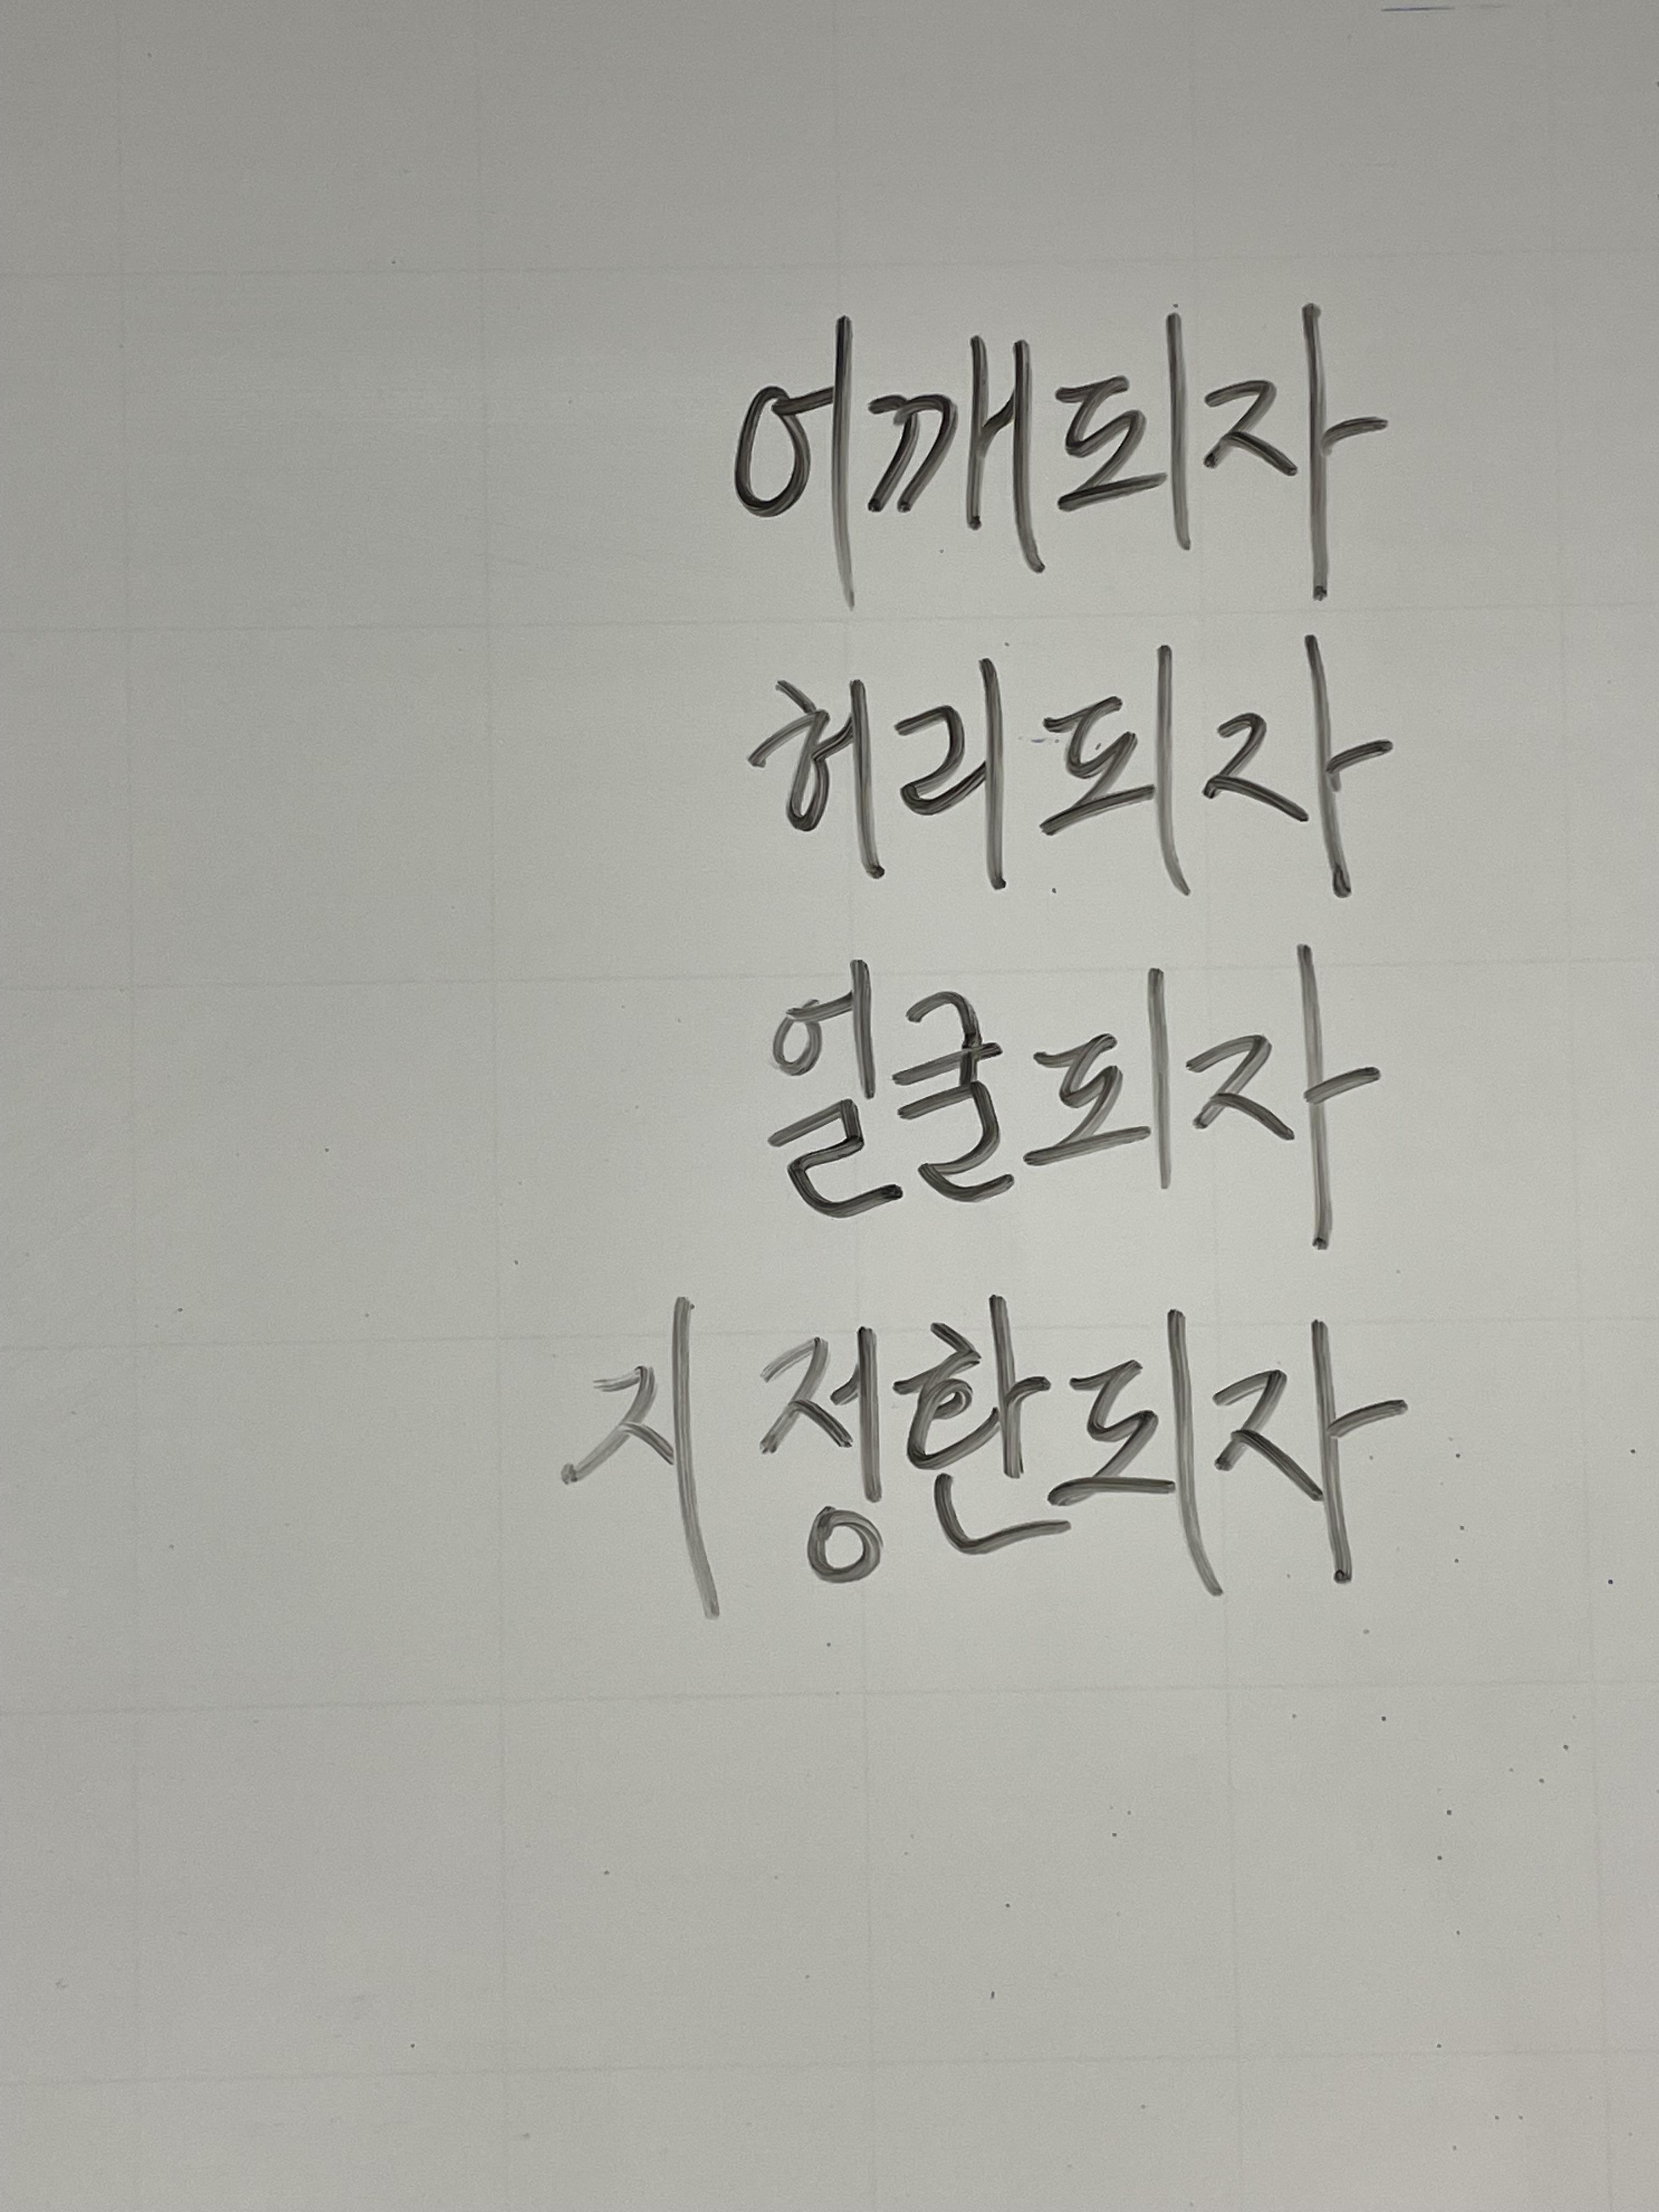 어깨되자
허리되자
얼굴되자
지정한되자